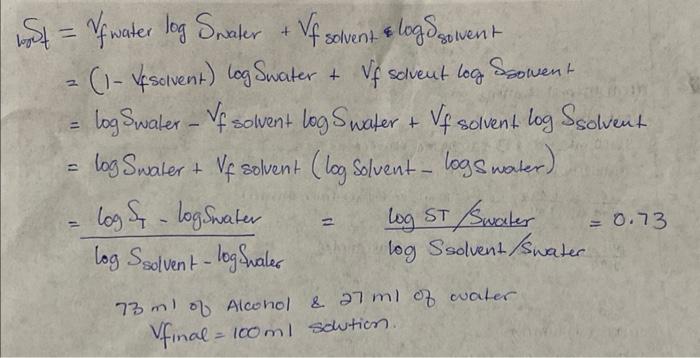 log St = Vf water log Swater + Vf solvent log Ssolvent
= (1 - Vf solvent) log Swater + Vf solvent log Ssolvent
= log Swater - Vf solvent log Swater + Vf solvent log Ssolvent
= log Swater + Vf solvent (log Solvent - log S water)
= log ST - log Swater / log Ssolvent - log Swater = log ST/Swater / log Ssolvent/Swater = 0.73
73 ml of Alcohol & 27 ml of water
Vfinal = 100 ml solution.